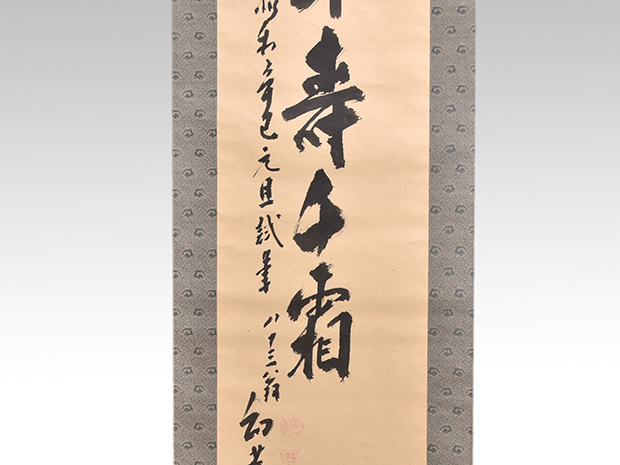 壽千霜
昭和辛巳元旦試筆 八十三翁 幻